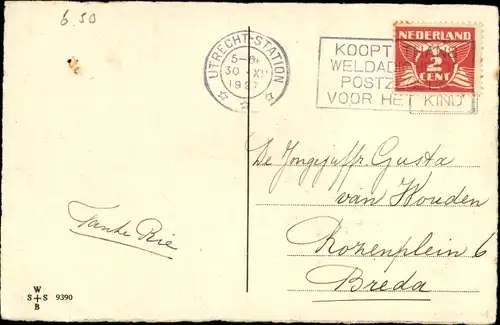 6.50
UTRECHT-STATION
5-6
30 XII
1927
KOOPT
WELDAD
POSTZ
VOOR HET KIND
NEDERLAND
2
CENT
De Jongejuffr. Gusta
van Wouden
Rozenplein 6
Breda
Tante Rie
W
S + S 9390
B